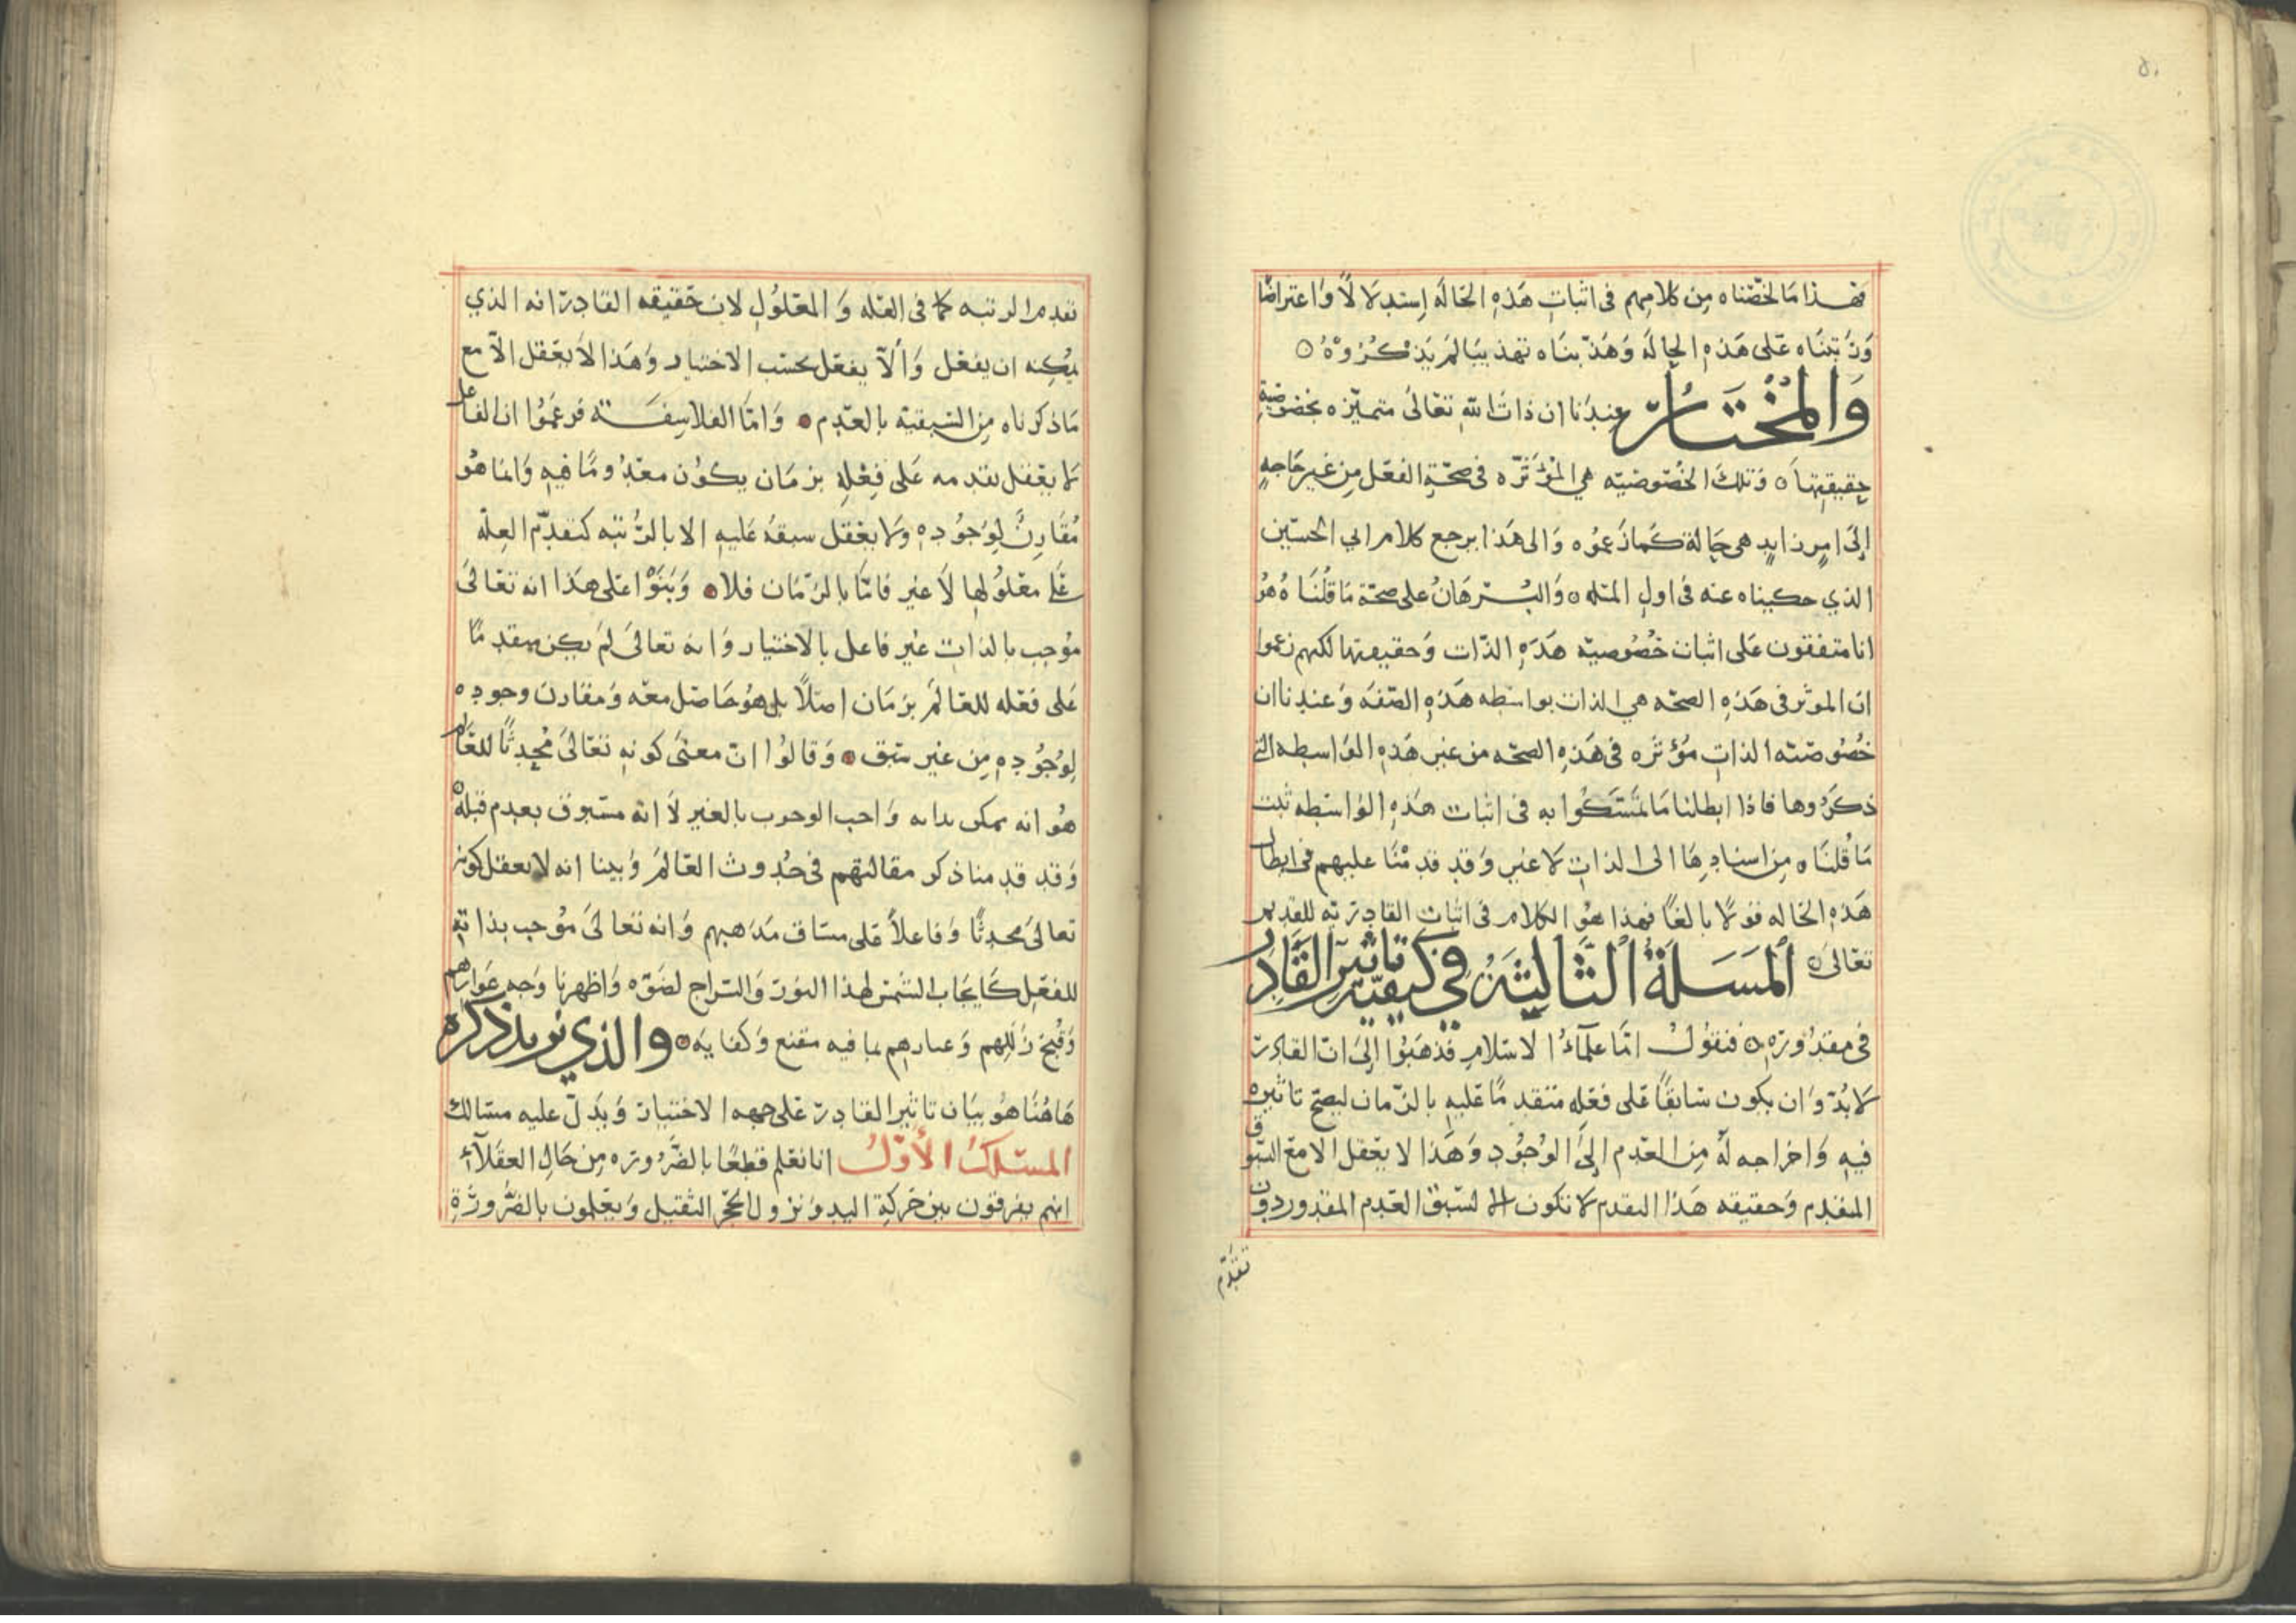 فهذا ما لخّصناه من كلامهم فى اثباتِ هَذِهِ الحَالَه إستدلالًا وَاعتراضًا
وَرَتبنَاه عَلى هَذهِ الحالَه وَهَذّبنَاه تهذيبًا لمْ يَذكُرُوهُ ه
وَالمُخْتَارُ عِندَنا ان ذاتَ الله تعَالىَ متميّزه بخصوصيّةِ
حقيقتِهَا ه وَتلكَ الخصُوصيّه هي المؤثّره فى صحّةِ الفعْل مِن غيرِ حَاجهٍ
إلىَ امرٍ زايدٍ هى حَالة كمَا زَعمُوه وَالى هَذا يرجع كلام ابي الحسَين
الذي حكيناه عنه فى اولِ المسَله ه وَالبُرهَانُ على صحّة مَا قُلنَاهُ هُوَ
انا متفقون عَلى اثبات خصُوصيّه هَذهِ الذّات وَحقيقتِها لكنهم زعموا
ان الموثر فى هَذهِ الصحّه هي الذات بواسطه هَذهِ الصّفَه وَعندنا ان
خصُوصيّه الذاتِ مُؤثره فى هَذهِ الصحّه من غيرِ هَذهِ الوَاسطه التى
ذكَرُوها فاذا ابطلنا مَا تمَسّكُوا به فى اثبات هَذهِ الوَاسطه ثبت
مَا قُلنَاه مِن اسنادِهَا الى الذاتِ لا غير وَقدْ قدمْنَا عليهم فى ابطال
هَذهِ الحَاله قولًا بالغًا فهذا هُوَ الكلام فى اثباتِ القادريّه للقديم
تعَالىَ ه المَسَلَةُ الثَّالِثَةُ فِي كَيفيّةِ تَاثيرِ القَادِرِ
فى مقدُورِهِ ه فنقولُ امّا علمَاءُ الاسْلامِ فذهبُوا إلىَ انّ القادر
لا بُدّ وَان يكون سَابقًا عَلى فعْلِهِ متقدمًا عَليهِ بالزّمان ليصحّ تاثيره
فيهِ وَاخراجه لهُ مِن العدَم إلىَ الوُجُودِ وَهَذا لا يعْقل الا معَ السّبق
المتقدم وَحقيقه هَذا التقدم لا تكون الا لسَبق العَدم المقدور دون
تقدّم
تقدم الرتبه كما فى العلّه وَالمعْلوُلِ لان حَقيقه القادر انه الذي
يمُكِنه ان يفعَل وَألّا يفعَل بحسَب الاختيار وَهَذا لا يعْقل الّا مع
مَا ذكرناه مِن السّبقيّه بالعدَم ه وَامّا الفلاسِفَه فزعمُوا ان الفاعل
لا يعْقل تقدمه عَلى فِعْلِهِ بزمَان يكُوُن معْدُومًا فيهِ وَانما هُو
مُقَارِنٌ لِوُجُودِهِ وَلا يعْقل سبقهُ عَليهِ الا بالرُّتبَه كتقدّم العِلّه
عَلى معْلوُلها لَا غير فامّا بالزّمَان فلا ه وَبَنوْا عَلى هَذا انه تعَالىَ
مُوجب بالذاتِ غير فاعل بالاختيار وَانه تعالىَ لمْ يكن متقدمًا
عَلى فعْله للعَالمَ بزمَان اصلًا بل هُو حَاصل معَه وَمقارن وجوده
لِوُجُودِهِ مِن غير سَبق ه وَقالوُا انّ معنَى كونهِ تعَالىَ مُحْدِثًا للعَالم
هُو انه ممكن بذاته وَاجب الوجوب بالغير لاَ انّه مسْبُوق بعدم قبلهُ
وَقد قدمنا ذكر مقالتهم فى حُدوث العَالمَ وَبينا انه لا يعقل كونه
تعالىَ محدِثًا وَفاعلاً عَلى مسَاق مَذهبهم وَانه تعالىَ مُوجب بذاتهِ
للفعْل كَايجَاب الشّمس لهذا النوُر وَالسّراج لضوّه وَاظهرنا وَجه عَوارهم
وَقُبحَ زَللِهم وَعنادهِم بما فيه مقنع وَكفايه ه والذي نريد ذكره
هَاهُنَا هُو بيَان تاثير القادر عَلى جهه الاختيار وَيدلّ عليه مسَالك
المسْلكُ الأوّلُ انا نعْلم قطعًا بالضّرُوره مِن حَالِ العقَلآء
انهم يفرقون بين حَركةِ اليد وَنزول الحجَر الثقيل وَيعْلمون بالضّرُورَةِ